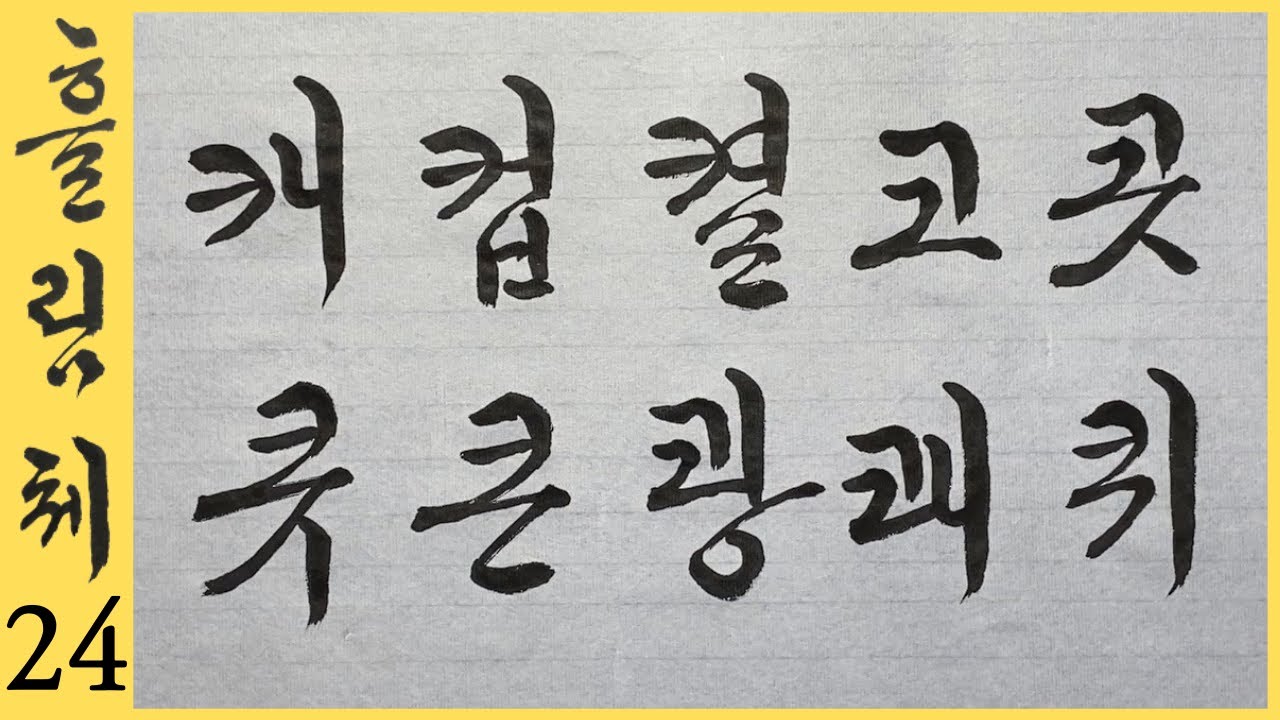 흘림체
24
캐 컵 켤 코 콧
큐 큰 쾅 쾌 퀴